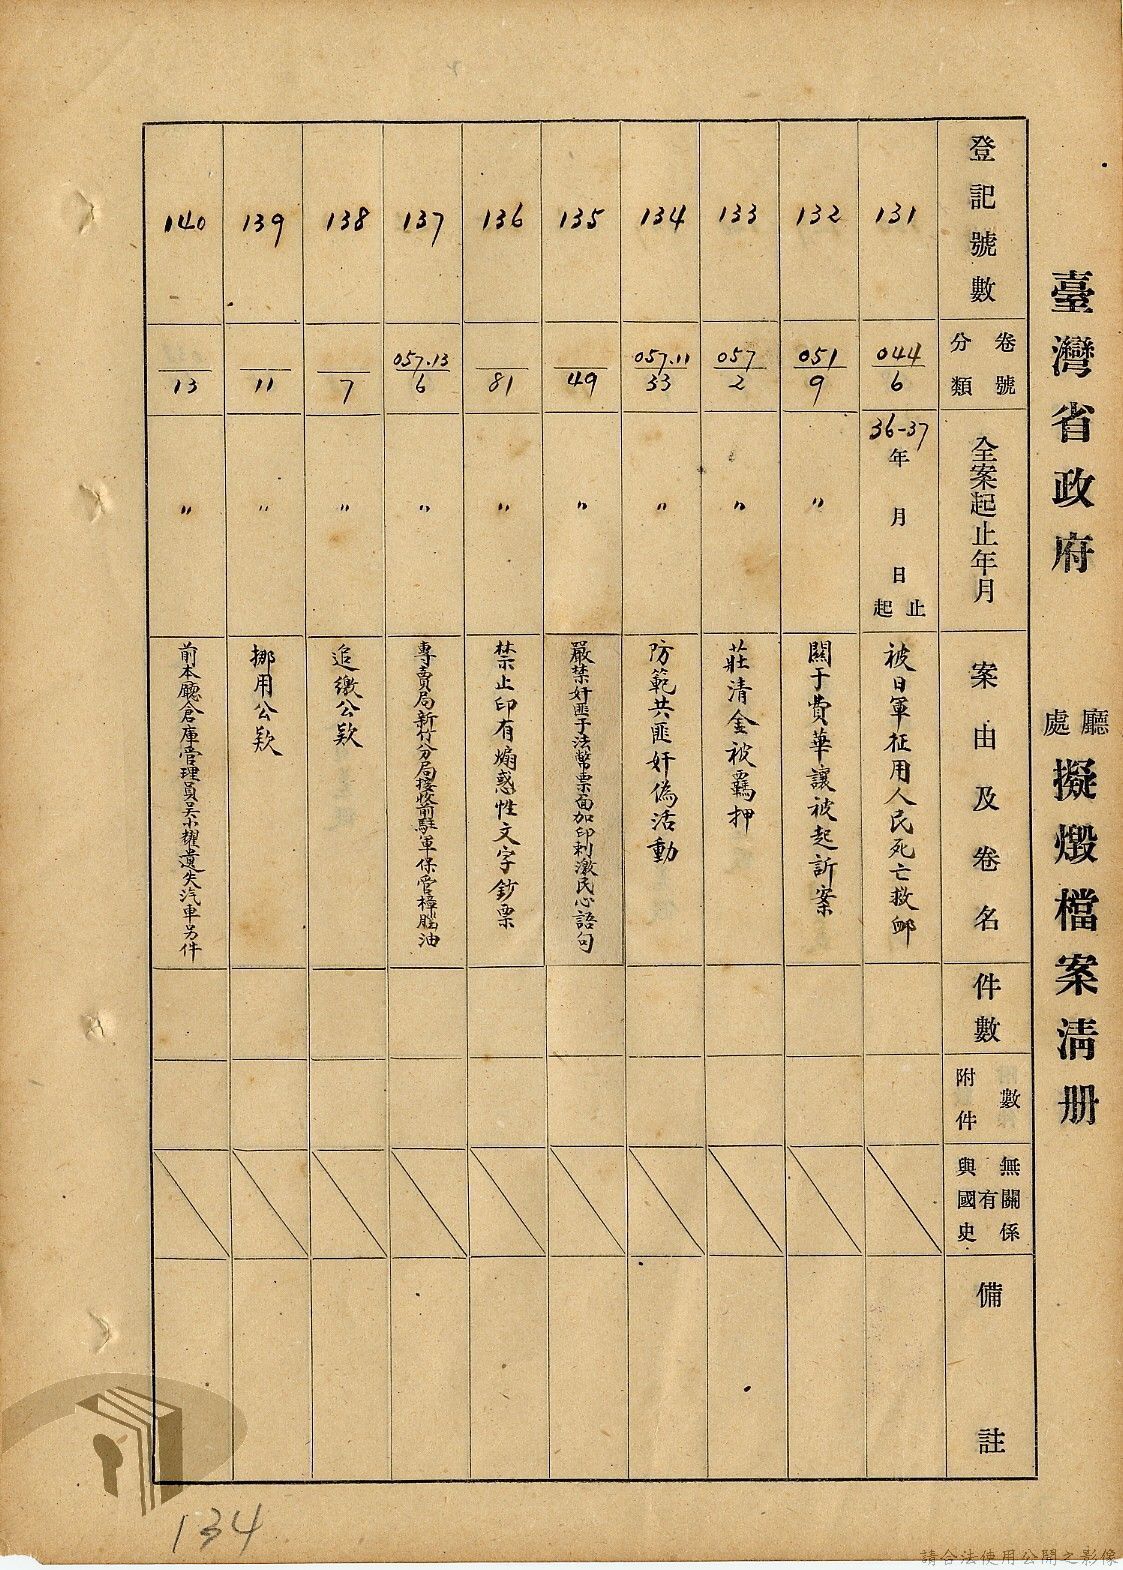 臺灣省政府 廳處 擬燬檔案清册
登記號數
卷號分類
全案起止年月
案由及卷名
件數
附件數
與國史有無關係
備註
131
044/6
36-37年 月 日起止
被日軍征用人民死亡救卹
132
051/9
〃
關于費華讓被起訴案
133
057/2
〃
莊清金被羈押
134
057.11/33
〃
防範共匪奸偽活動
135
49
〃
嚴禁奸匪于法幣票面加印刺激民心語句
136
81
〃
禁止印有煽惑性文字鈔票
137
057.13/6
〃
專賣局新竹分局接收前駐軍保管樟腦油
138
7
〃
追繳公款
139
11
〃
挪用公款
140
13
〃
前本廳倉庫管理員吳小耀遺失汽車另件
134
請合法使用公開之影像